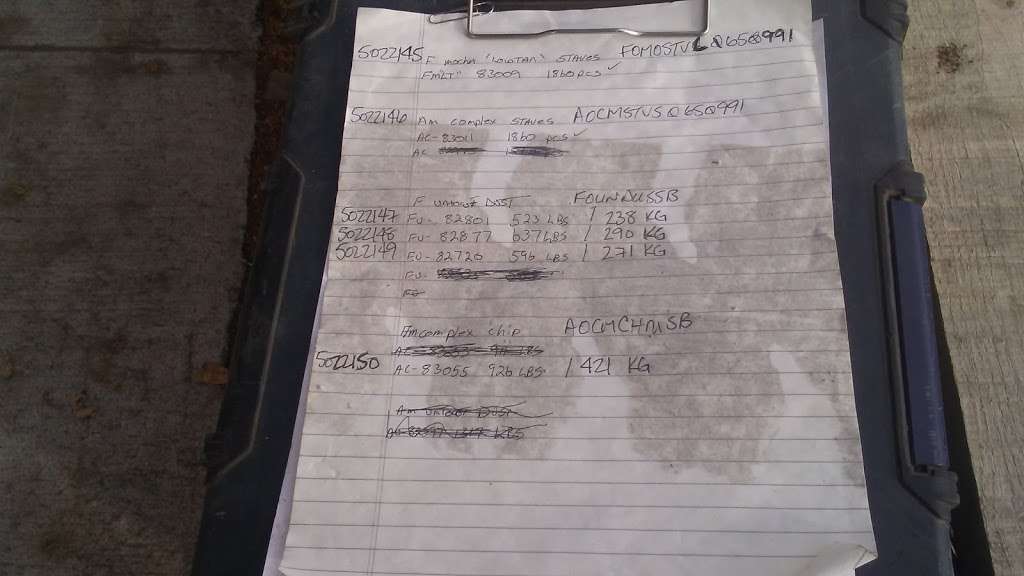 5022145 F mocha "LOWTAN" STAVES FOMOSTVLQ65Q991
FMLT" 83009 1860 pcs ✓
5022146 Am complex STAVES AOCMSTVSQ65Q991
AC-83011 1860 pcs ✓
AC
F untoast DUST FOUNDUSSB
5022147 FU- 82801 523 LBS / 238 KG
5022148 FU- 82877 637 LBS / 290 KG
5022149 FU- 82720 596 LBS / 271 KG
FU-
Am complex chip AOCMCHMSB
5022150 AC-83055 926 LBS / 421 KG
Am untoast DUST